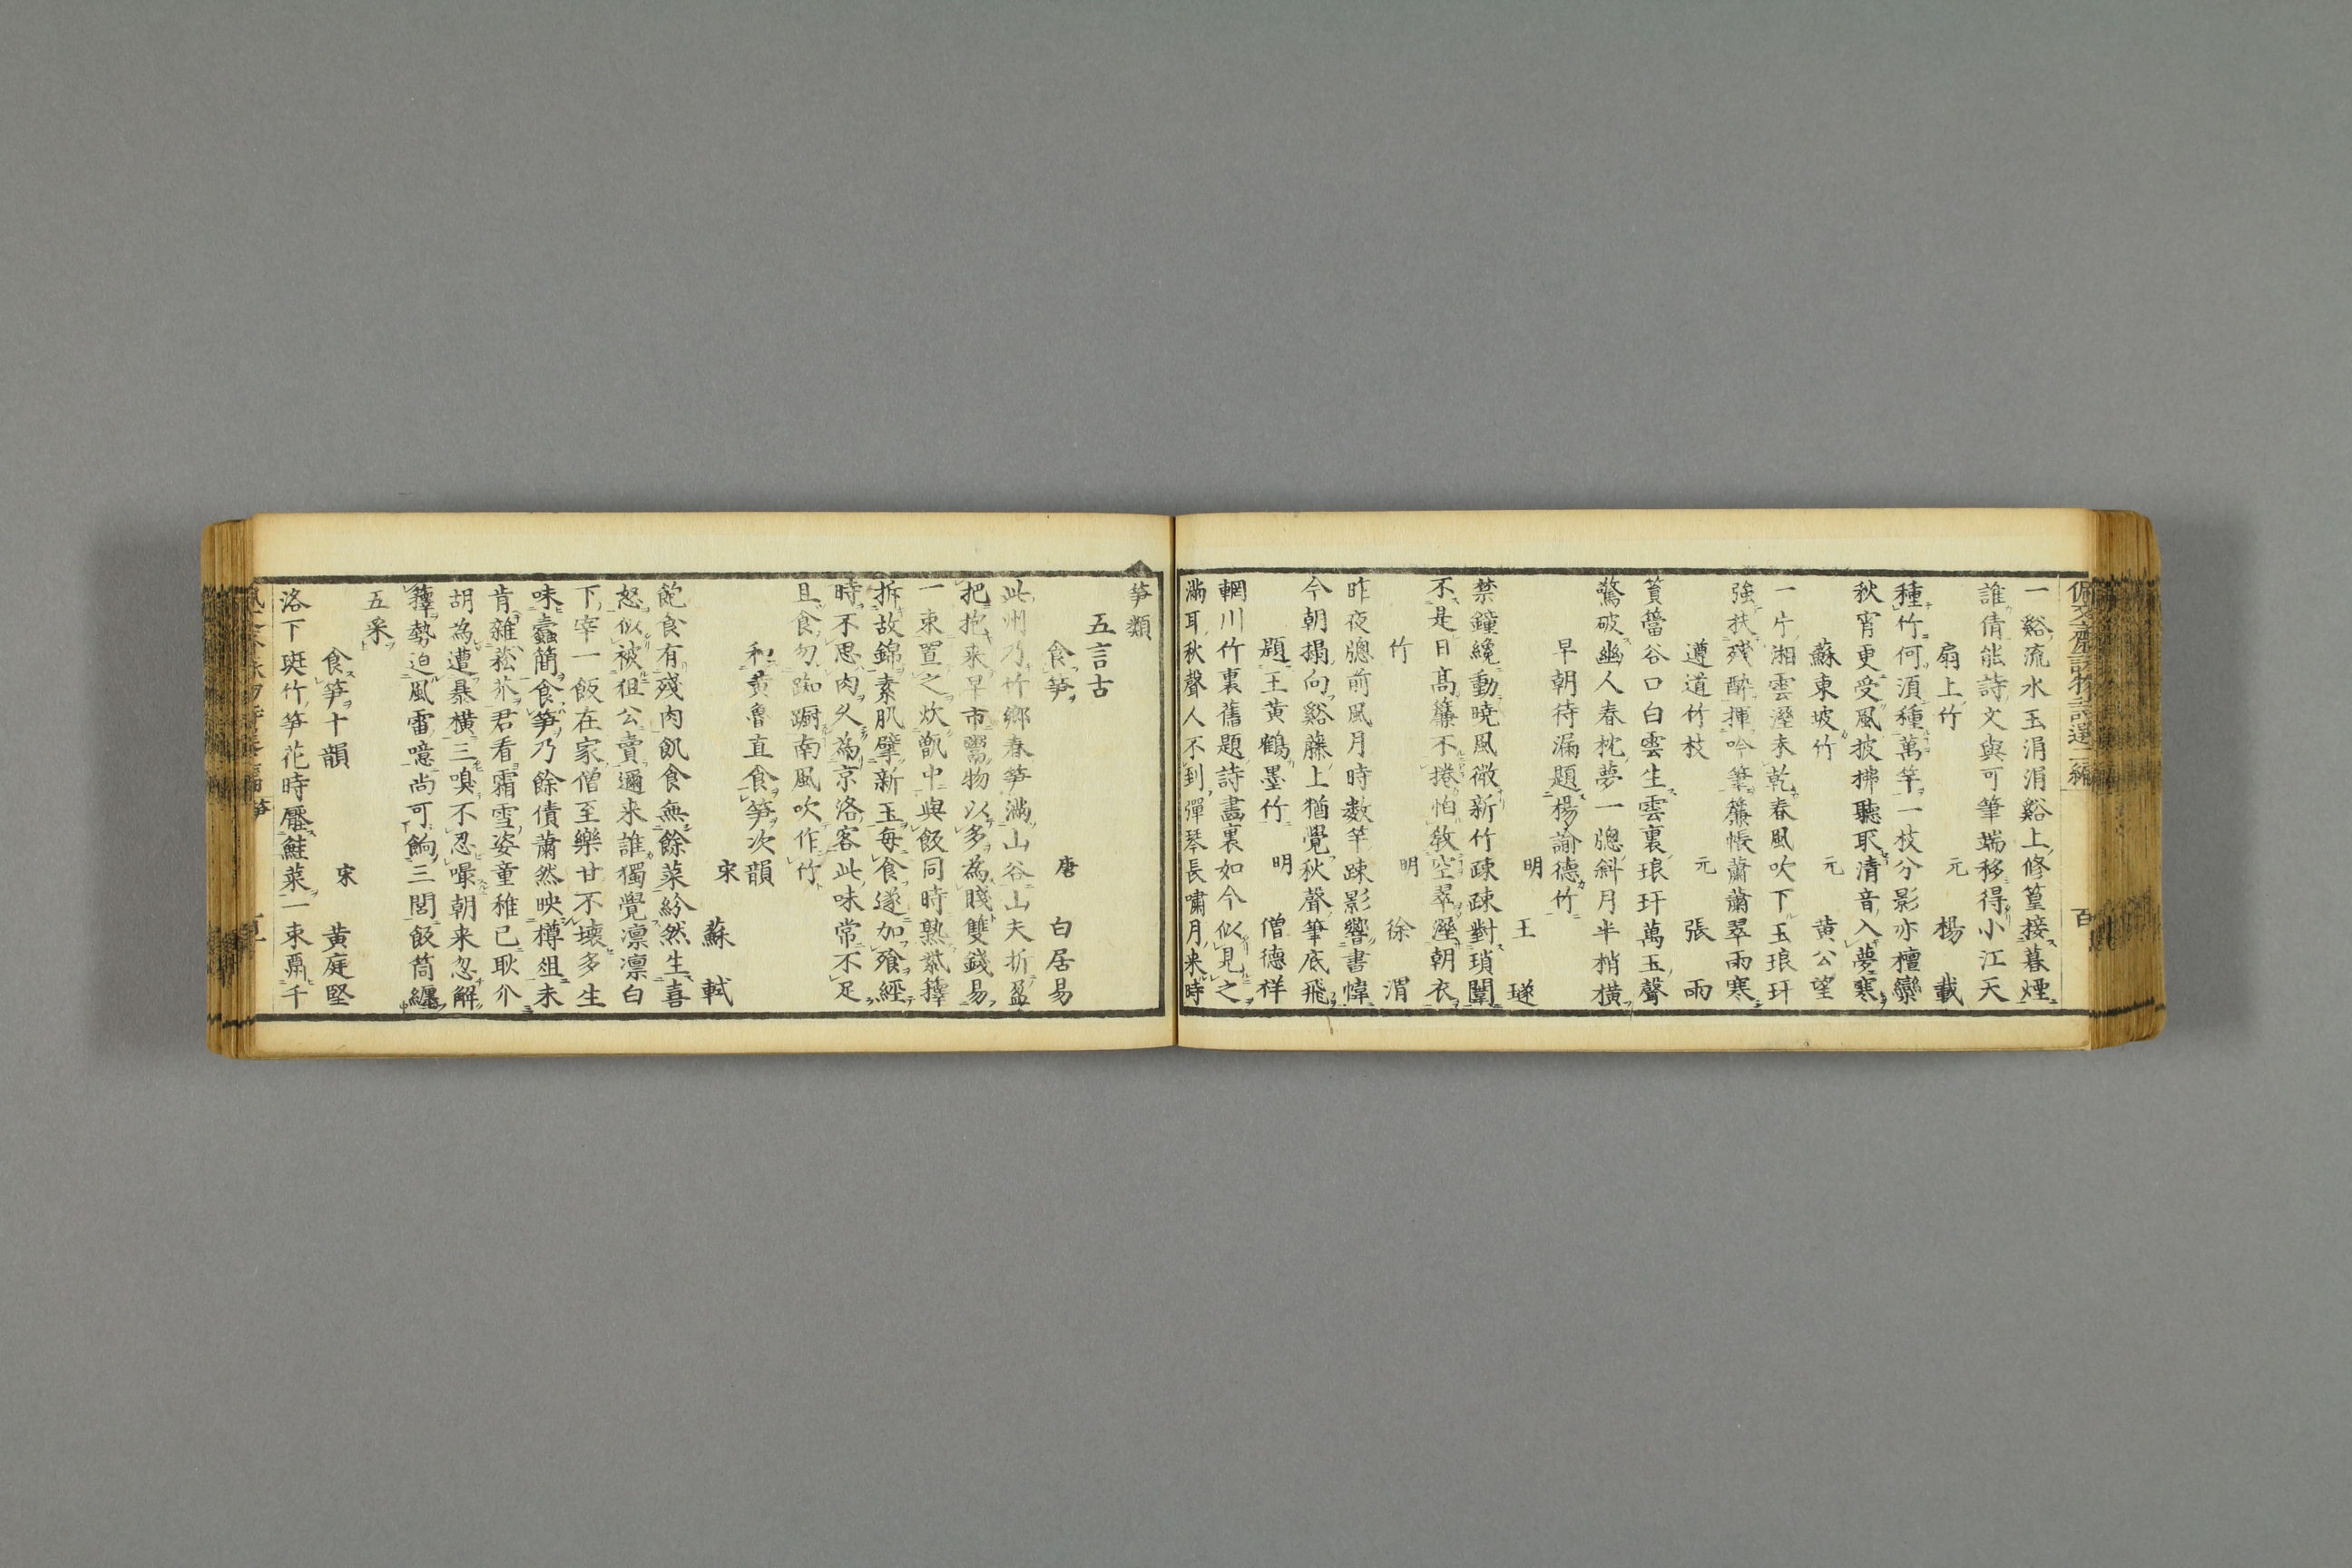 佩文齋詠物詩選二編 百
一谿流水玉涓涓谿上修篁接暮煙
誰倩能詩文與可筆端移得小江天
扇上竹 元 楊載
種竹何湏種萬竿一枝分影亦檀欒
秋宵更受風披拂聽取清音入夢寒
蘇東坡竹 元 黄公望
一片湘雲溼未乾春風吹下玉琅玕
強扶殘醉揮吟筆簾帳蕭蕭翠雨寒
遵道竹枝 元 張雨
篔簹谷口白雲生雲裏琅玕萬玉聲
驚破幽人春枕夢一牕斜月半梢橫
早朝待漏題楊諭德竹
明 王璲
禁鐘纔動曉風微新竹疎疎對瑣闈
不是日髙簾不捲怕教空翠溼朝衣
竹 明 徐渭
昨夜牕前風月時數竿疎影響書幃
今朝搨向谿藤上猶覺秋聲筆底飛
題王黄鶴墨竹 明 僧德祥
輞川竹裏舊題詩畫裏如今似見之
滿耳秋聲人不到彈琴長嘯月来時
笋類
五言古
食笋 唐 白居易
此州乃竹鄉春笋滿山谷山夫折盈
把抱来早市鬻物以多為賤雙錢易
一束置之炊甑中與飯同時熟紫籜
拆故錦素肌擘新玉每食遂加飱經
時不思肉久為京洛客此味常不足
且食勿踟蹰南風吹作竹
和黄魯直食笋次韻
宋 蘇軾
飽食有殘肉飢食無餘菜紛然生喜
怒似被狙公賣邇来誰獨覺凛凛白
下宰一飯在家僧至樂甘不壞多生
味蠹簡食笋乃餘債蕭然映樽俎未
肯雜菘芥君看霜雪姿童稚已耿介
胡為遭暴横三嗅不忍嘬朝来忽解
籜勢迫風雷噫尚可餉三閭飯筒纏
五采
食笋十韻 宋 黄庭堅
洛下斑竹笋花時壓鮭菜一束酬千